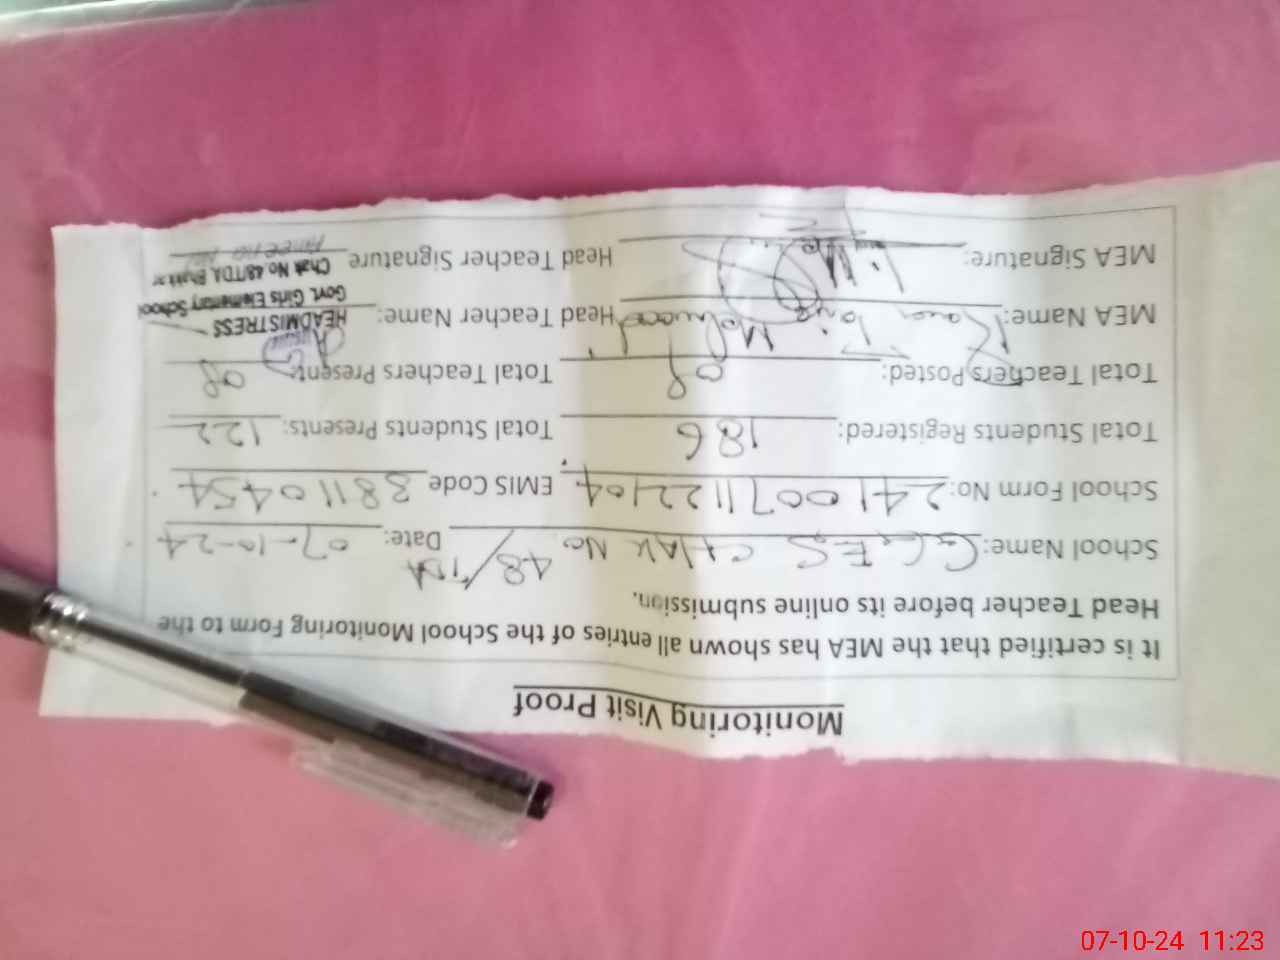 Monitoring Visit Proof
It is certified that the MEA has shown all entries of the School Monitoring Form to the
Head Teacher before its online submission.
School Name: GGES CHAK No 48/TDA Date: 07-10-24
School Form No: 2410071122404 EMIS Code 38110454
Total Students Registered: 186 Total Students Presents: 122
Total Teachers Posted: 08 Total Teachers Present: 08
MEA Name: Mehmood Head Teacher Name: HEADMISTRESS
Govt. Girls Elementary School
Chak No.48/TDA Bhakkar
MEA Signature: Head Teacher Signature
07-10-24 11:23